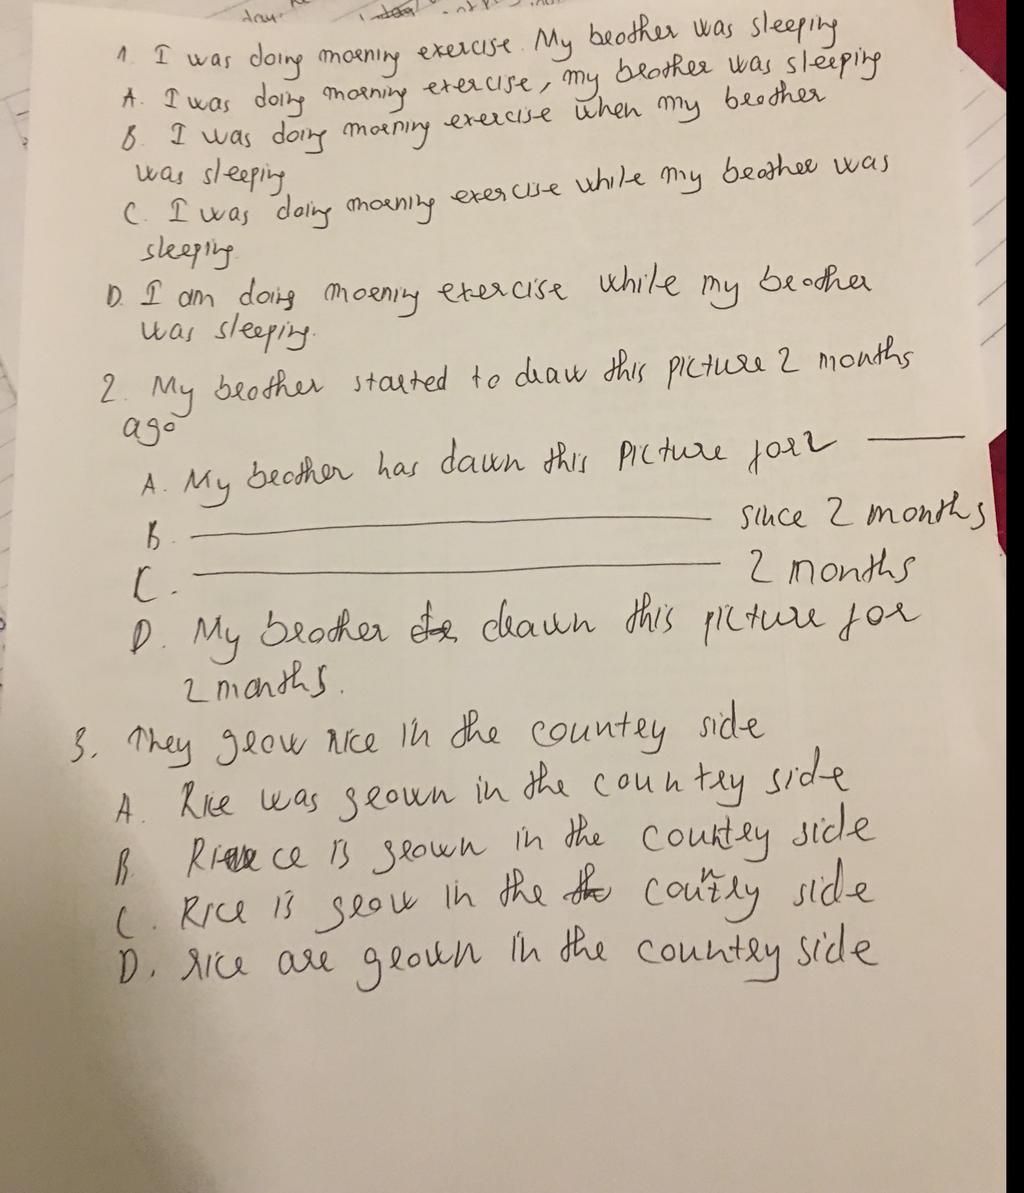 1. I was doing morning exercise. My brother was sleeping
A. I was doing morning exercise, my brother was sleeping
B. I was doing morning exercise when my brother
was sleeping
C. I was doing morning exercise while my brother was
sleeping
D. I am doing morning exercise while my brother
was sleeping.
2. My brother started to draw this picture 2 months
ago
A. My brother has dawn this picture for 2
B. since 2 months
C. 2 months
D. My brother drawn this picture for
2 months.
3. They grow rice in the country side
A. Rice was grown in the country side
B Rice is grown in the country side
C. Rice is grow in the country side
D. rice are grown in the country side